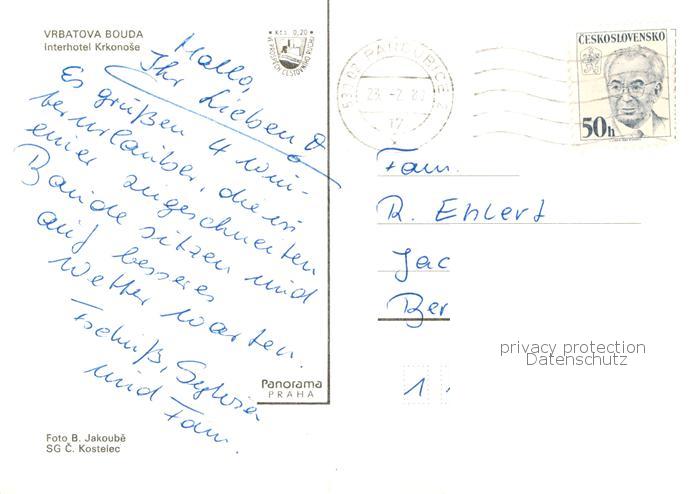 VRBATOVA BOUDA
Interhotel Krkonoše
Kčs 0,20
VE PROSPĚCH CESTOVNÍHO RUCHU
Hallo,
Ihr Lieben
Es grüßen 4 Win-
terurlauber, die in
einer zugeschneiten
Baude sitzen und
auf besseres
Wetter warten.
Tschüß, Sylvia
und Fam.
Panorama
PRAHA
Foto B. Jakoubě
SG Č. Kostelec
PARDUBICE 2
ČESKOSLOVENSKO
50h
Fam.
R. Ehlert
Jac
Ber
1
privacy protection
Datenschutz